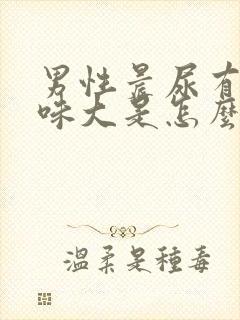 男性晨尿有
味大是怎麼
溫柔是種毒